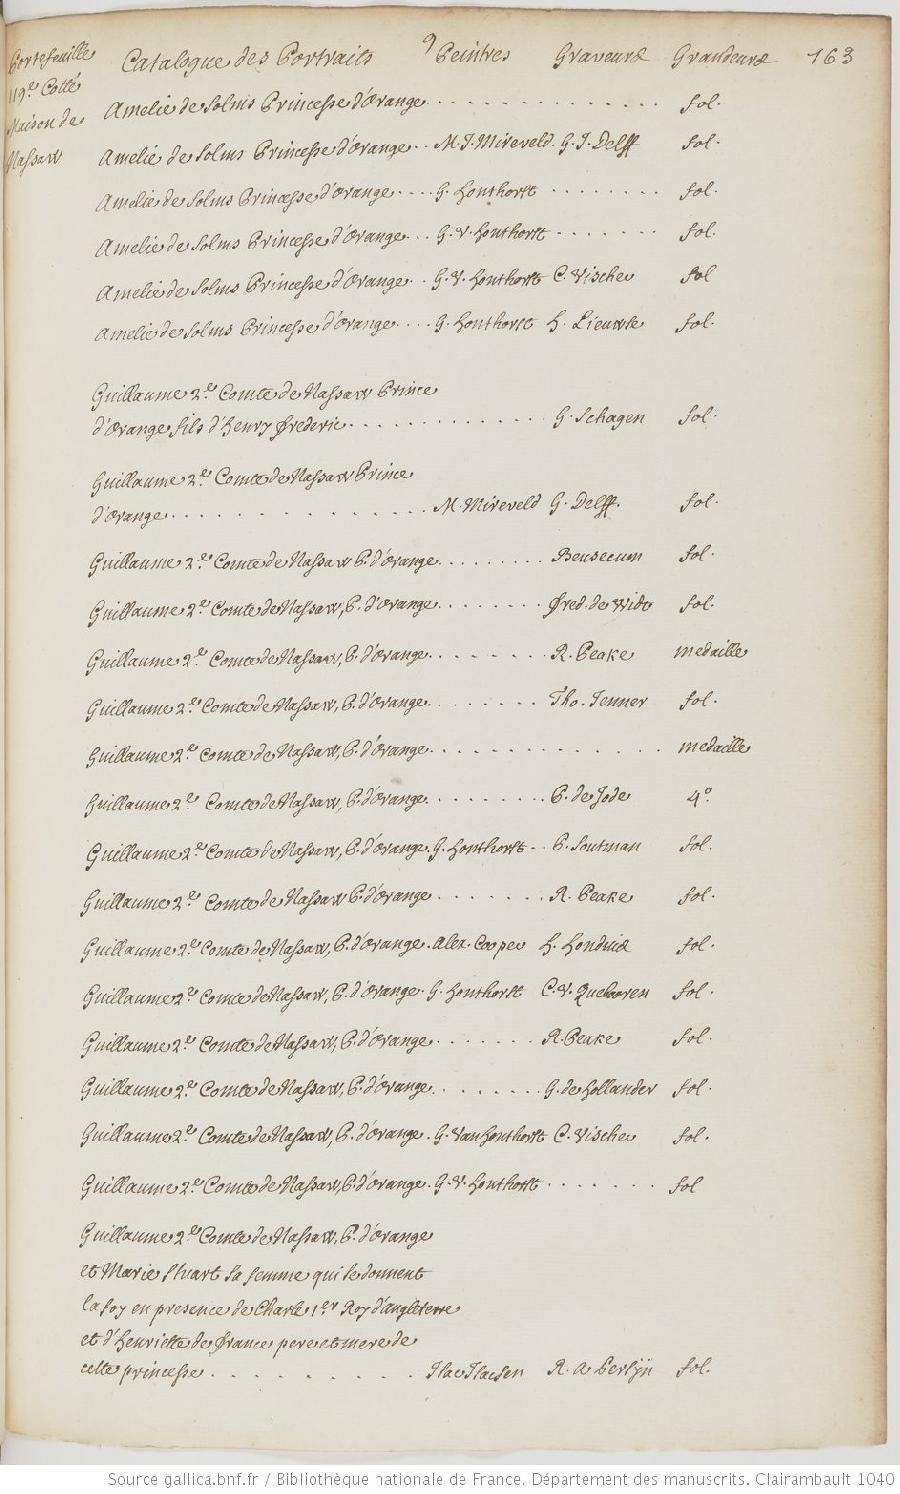 Portefeuille
119.e Cotté
Maison de
Nassaw
Catalogue des Portraits 9 Peintres Graveurs Grandeurs 163
Amelie de Solms Princesse d'Orange . . . . . . . . . . . . . . . fol.
Amelie de Solms Princesse d'Orange . . M. J. Mireveld. G. J. Delff fol.
Amelie de Solms Princesse d'Orange . . . . G. Honthorst . . . . . . . . fol.
Amelie de Solms Princesse d'Orange . . . G. V. Honthorst . . . . . . . fol.
Amelie de Solms Princesse d'Orange . . G. V. Honthorst C. Vischer fol
Amelie de Solms Princesse d'Orange . . . . G. Honthorst H. Lieuwte fol.
Guillaume 2.e Comte de Nassaw Prince
d'Orange fils d'Henry Frederic . . . . . . . . . . . . . . G. Schagen fol.
Guillaume 2.e Comte de Nassaw Prince
d'Orange . . . . . . . . . . . . . M. Mireveld G. Delff. fol.
Guillaume 2.e Comte de Nassaw P. d'Orange . . . . . . . . . Beusecum fol.
Guillaume 2.e Comte de Nassaw, P. d'Orange . . . . . . . . Fred. de Widt fol.
Guillaume 2.e Comte de Nassaw, P. d'Orange . . . . . . . . R. Peake medaille
Guillaume 2.e Comte de Nassaw, P. d'Orange . . . . . . . . Tho. Jenner fol.
Guillaume 2.e Comte de Nassaw, P. d'Orange . . . . . . . . . . . . . . . medaille
Guillaume 2.e Comte de Nassaw, P. d'Orange . . . . . . . . P. de Jode 4.o
Guillaume 2.e Comte de Nassaw, P. d'Orange . G. Honthorst . . P. Soutman fol.
Guillaume 2.e Comte de Nassaw P. d'Orange . . . . . . . R. Peake fol.
Guillaume 2.e Comte de Nassaw, P. d'Orange . Alex. Cooper H. Hondius fol.
Guillaume 2.e Comte de Nassaw, P. d'Orange . G. Honthorst C. V. Queboren fol.
Guillaume 2.e Comte de Nassaw, P. d'Orange . . . . . . . R. Peake fol.
Guillaume 2.e Comte de Nassaw, P. d'Orange . . . . . . . G. de Hollander fol.
Guillaume 2.e Comte de Nassaw, P. d'Orange . G. Van Honthorst C. Vischer fol.
Guillaume 2.e Comte de Nassaw, P. d'Orange . G. V. Honthorst . . . . . . . fol
Guillaume 2.e Comte de Nassaw, P. d'Orange
et Marie Stuart sa femme qui se donnent
la foy en presence de Charle 1.er Roy d'angleterre
et d'Henriette de France pere et mere de
cette princesse . . . . . . . . . . Isac Isacsen R. a Persÿn fol.
Source gallica.bnf.fr / Bibliothèque nationale de France. Département des manuscrits. Clairambault 1040